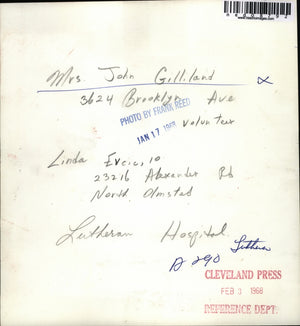 Mrs John Gilliland
3624 Brooklyn Ave
PHOTO BY FRANK REED
JAN 17 1968
volunteer
Linda
23216 Alexander Rd
North Olmstad
Lutheran Hospital
D 290
CLEVELAND PRESS
FEB 3 1968
REFERENCE DEPT.